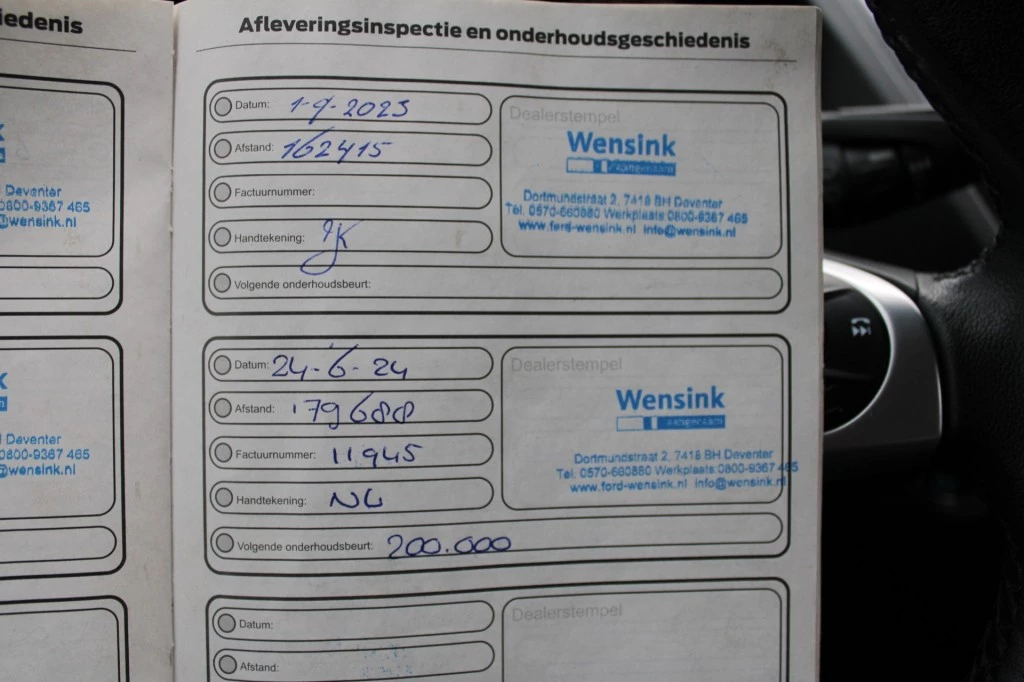 iedenis
Deventer
0800-9367 465
@wensink.nl
Deventer
0800-9367 465
@wensink.nl
Afleveringsinspectie en onderhoudsgeschiedenis
Datum: 1-9-2023
Afstand: 162415
Factuurnummer:
Handtekening:
Volgende onderhoudsbeurt:
Dealerstempel
Wensink
Dortmundstraat 2, 7418 BH Deventer
Tel. 0570-660880 Werkplaats 0800-9367 465
www.ford-wensink.nl info@wensink.nl
Datum: 24-6-24
Afstand: 179688
Factuurnummer: 11945
Handtekening: NL
Volgende onderhoudsbeurt: 200.000
Dealerstempel
Wensink
Dortmundstraat 2, 7418 BH Deventer
Tel. 0570-660880 Werkplaats: 0800-9367 465
www.ford-wensink.nl info@wensink.nl
Datum:
Afstand:
Dealerstempel